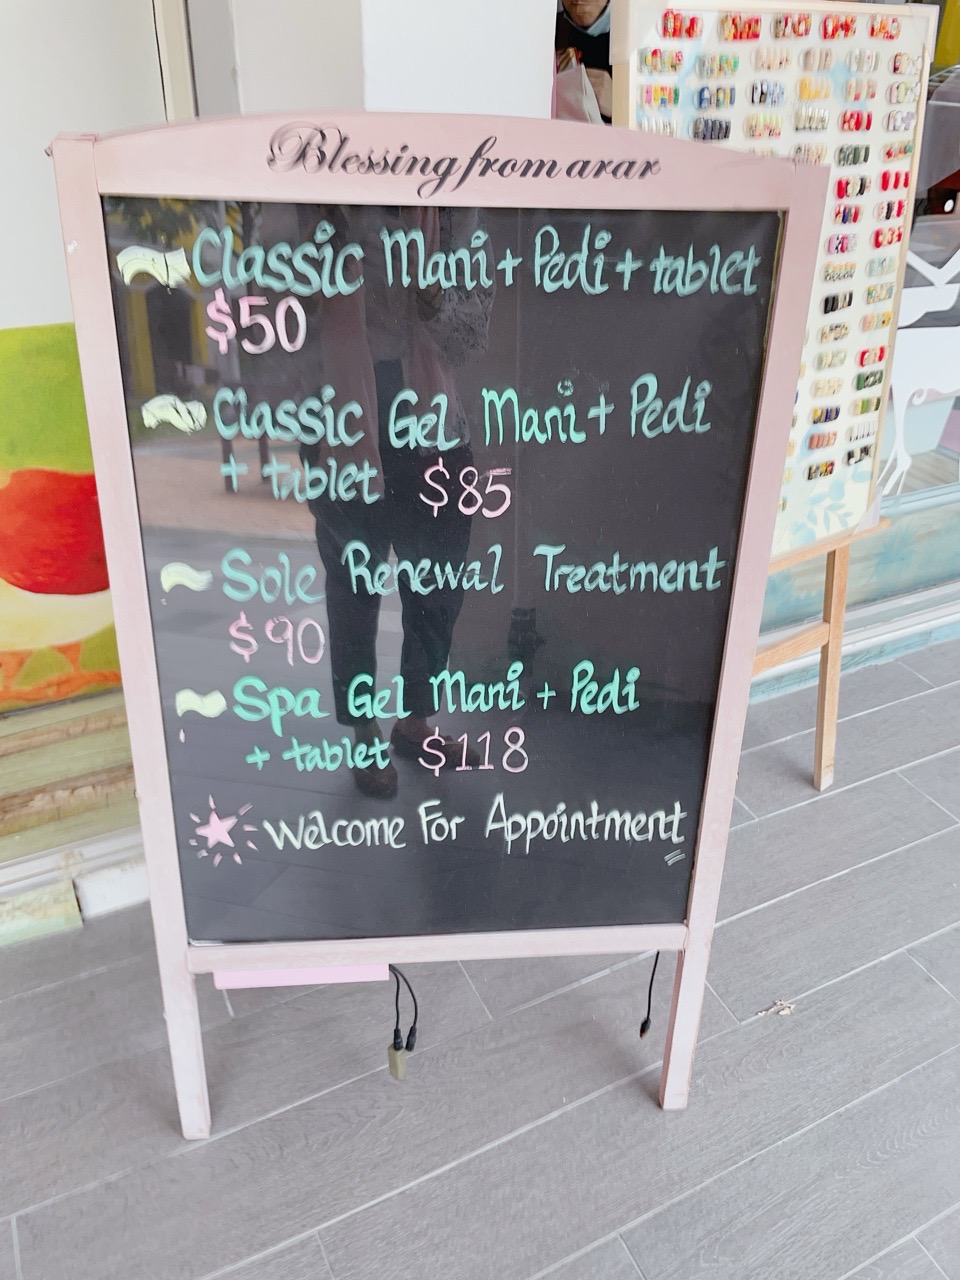 Blessing from arar
Classic Mani + Pedi + tablet
$50
Classic Gel Mani + Pedi
+ tablet $85
Sole Renewal Treatment
$90
Spa Gel Mani + Pedi
+ tablet $118
Welcome For Appointment